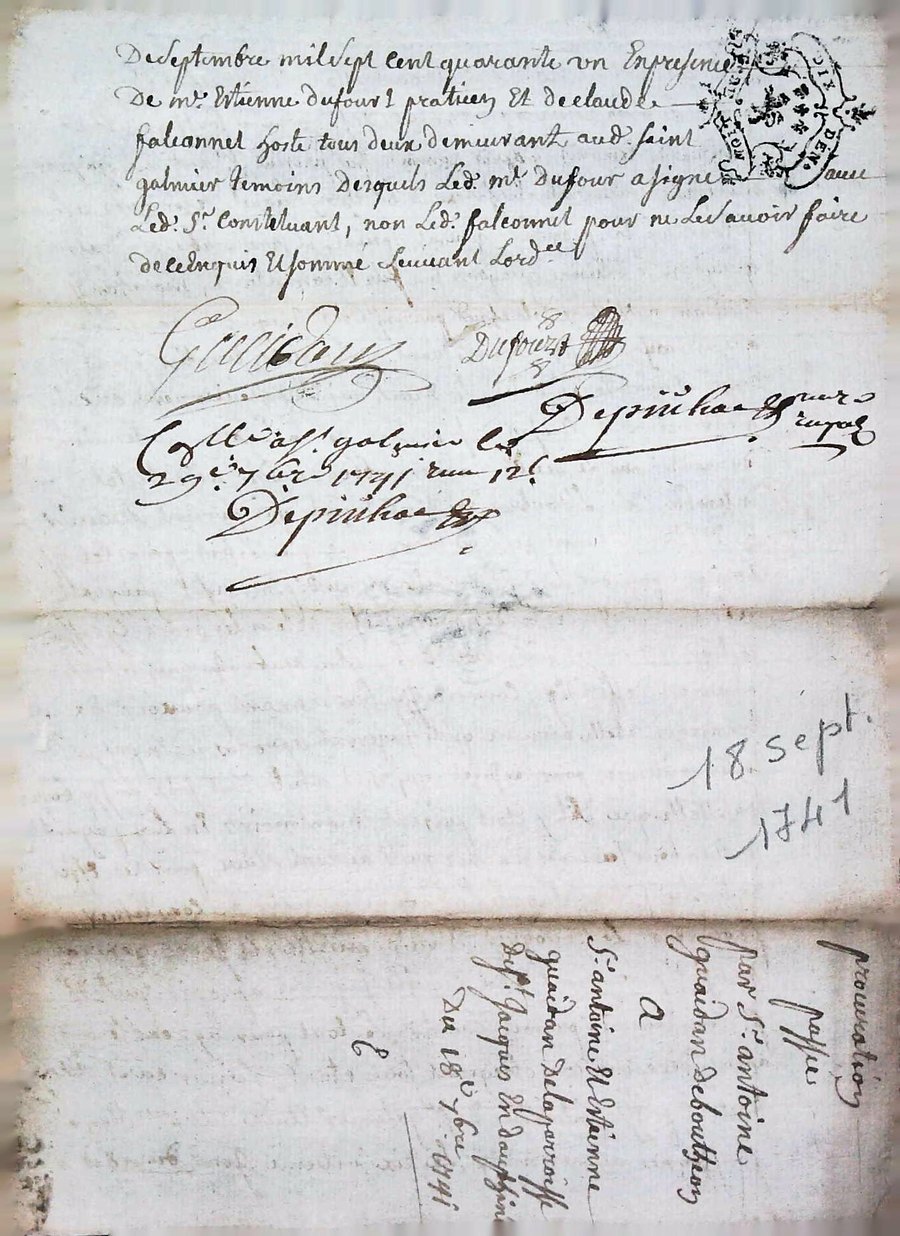 De Septembre mil Sept Cent quarante un En presence
De mr. Estienne dufourt praticien Et de claude
falconnet hoste tous deux demeurant aud. Saint
galmier temoins Desquels Led. mr. Dufour a signe avec
Led. Sr. Constituant, non Led. falconnet pour ne Le Savoir faire
de ce Enquis Et sommé Suivant Lord.ce
Dufourt
Depinhac
galmier
29e. 7bre 1741
Depinhac
18 sept.
1741
procuration
passee
par Sr. antoine
quaidan de boutheon
A
Sr. antoine Et Estienne
quaidan De la parroisse
De St. Jacques En dauphiné
Du 18e. 7bre. 1741